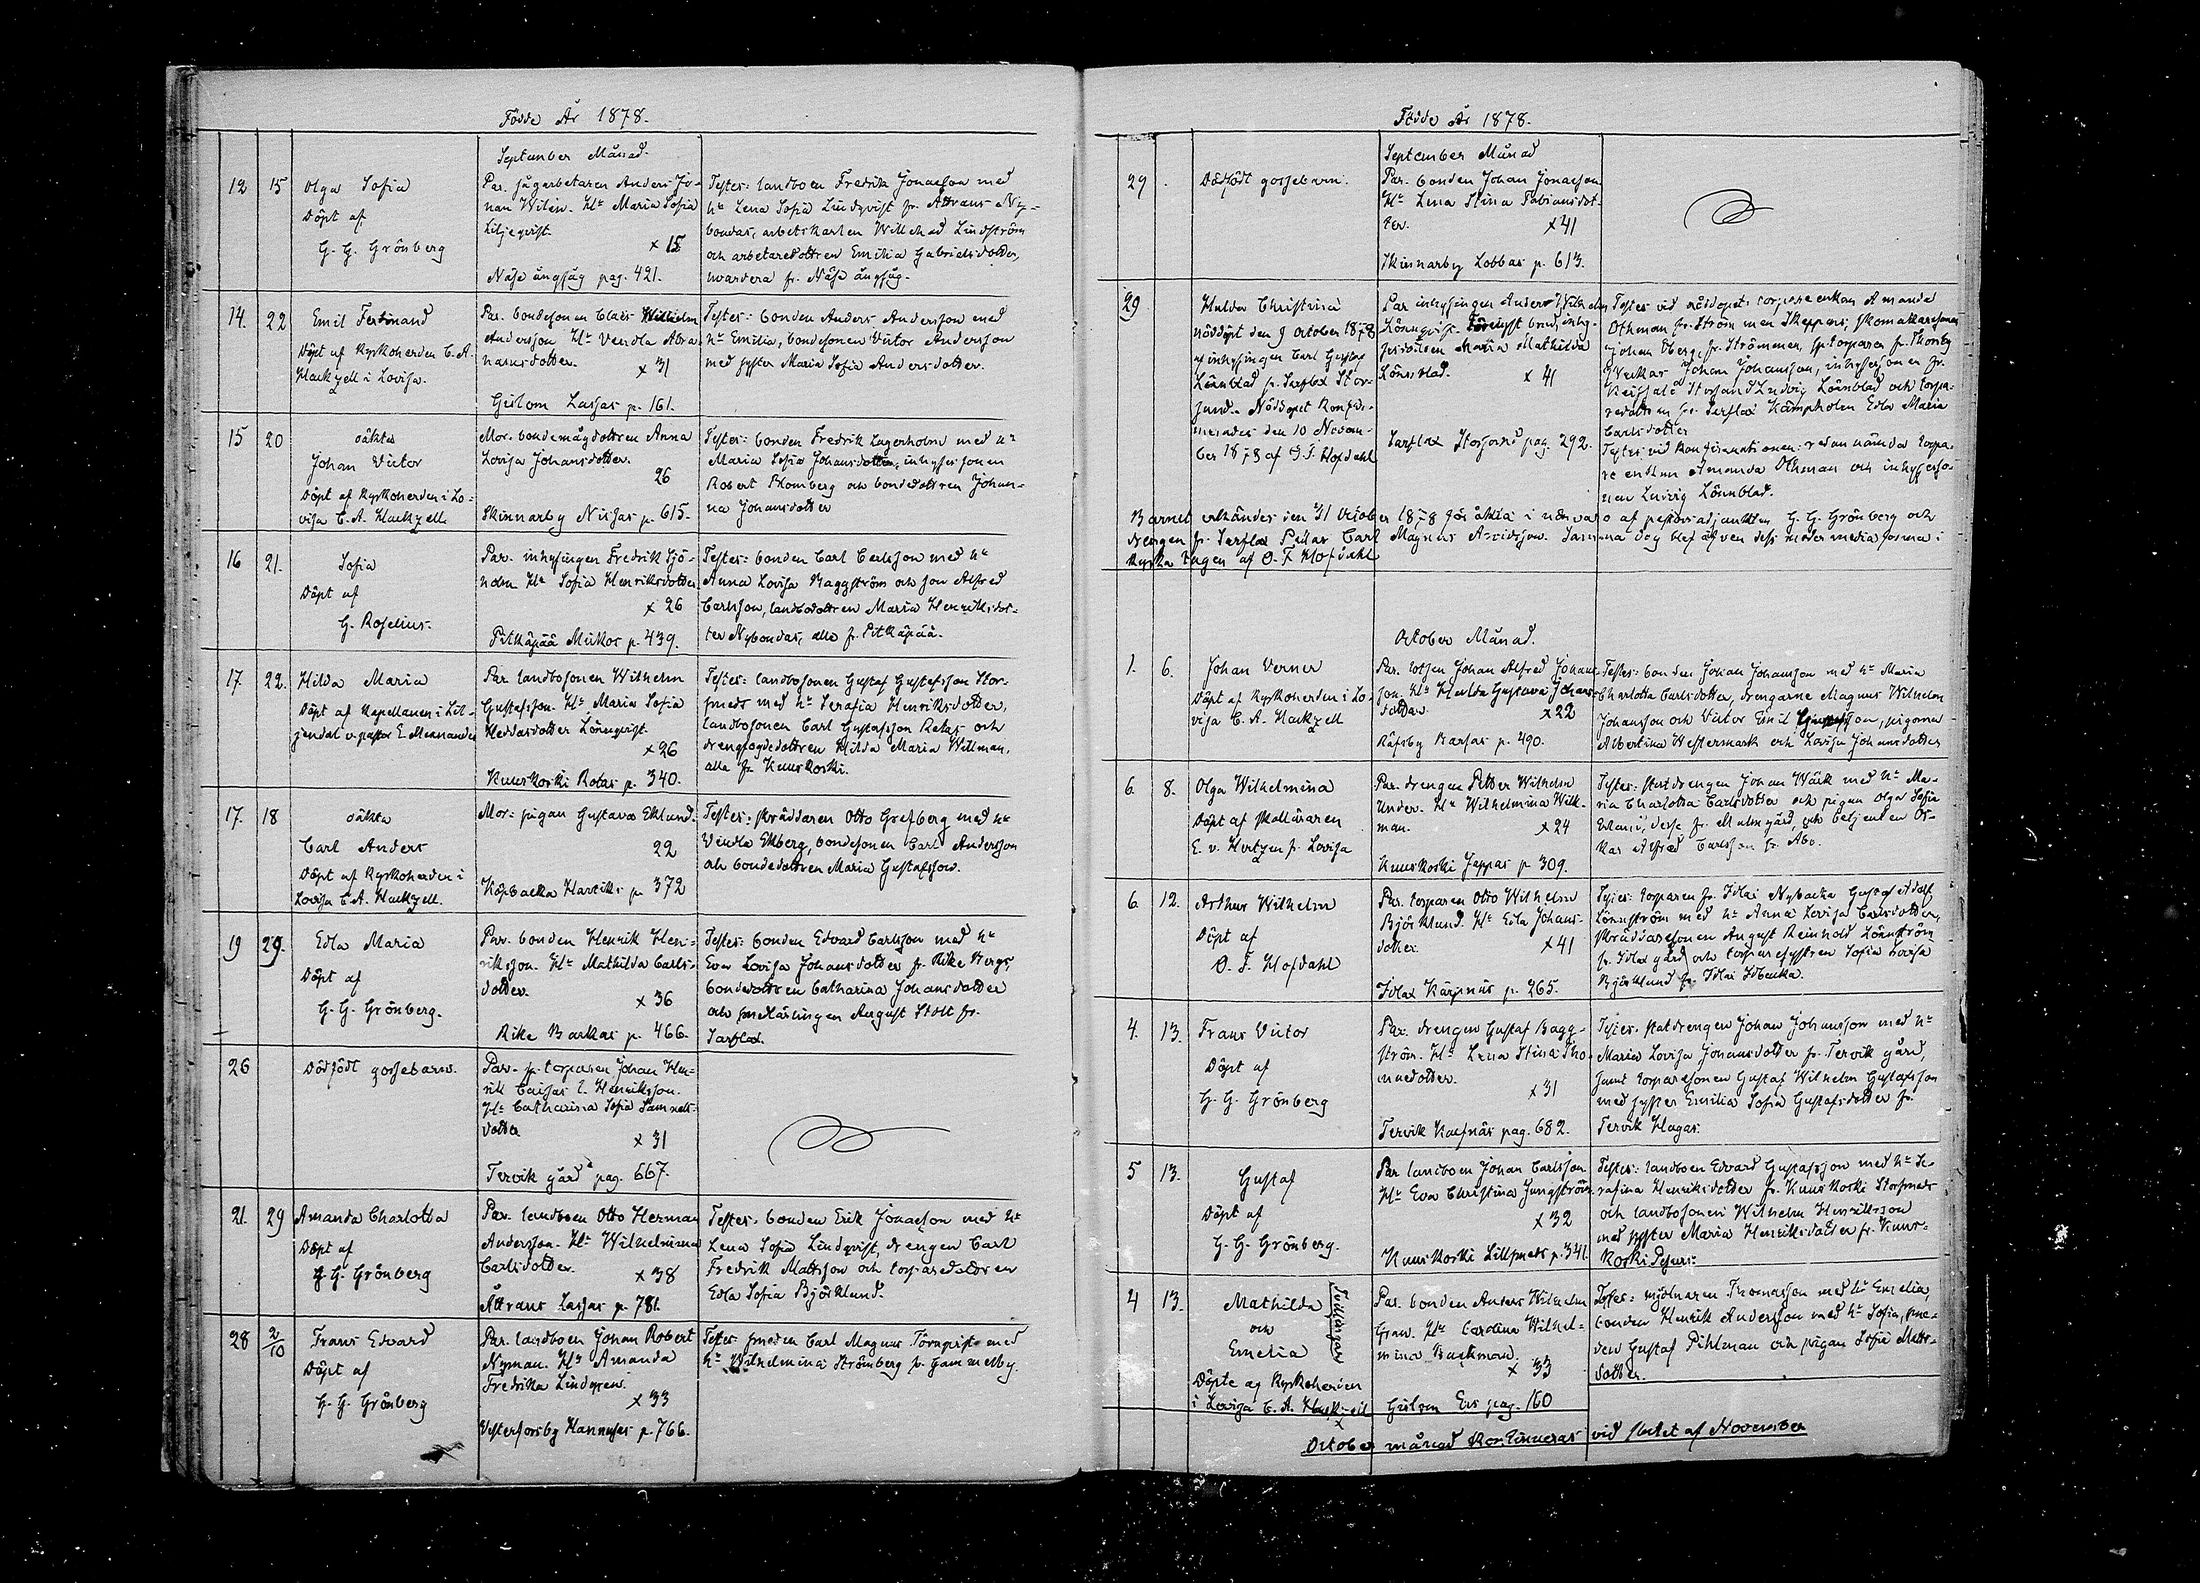 Födde År 1878.
September Månad.
12 15 Olga Sofia
Döpt af
G. G. Grönberg
Par. sågarbetaren Anders Jo-
nan Wilén. Hu Maria Sofia
Liljeqvist.
x 15
Näse ångsåg pag. 421.
Testes: landboen Fredrik Jonasson med
hu Lena Sofia Lindqvist fr. Åttraus Ny-
bondas, arbetskarlen Willehad Lindström
och arbetaredottren Emilia Gabrielsdotter,
hvardera fr. Näse ångsåg.
14. 22 Emil Ferdinand
Döpt af Kyrkoherden C. A.
Hackzell i Lovisa.
Par. bondesonen Claes Wilhelm
Andersson Hu Vendla Abra-
hamsdotter.
x 31
Gislom Lassas p. 161.
Testes: bonden Anders Andersson med
hu Emilia, bondesonen Victor Andersson
med syster Maria Sofia Andersdotter.
15 20 oäkta
Johan Victor
Döpt af Kyrkoherden i Lo-
visa C. A. Hackzell
Mor. bondemågdottren Anna
Lovisa Johansdotter.
26
Skinnarby Nissas p. 615.
Testes: bonden Fredrik Lagerholm med hu
Maria Sofia Johansdotter, inhysessonen
Robert Blomberg och bondedottren Johan-
na Johansdotter
16 21. Sofia
Döpt af
G. Roselius.
Par. inhysingen Fredrik Sjö-
holm Hu Sofia Henriksdotter
x 26
Pitkäpää Mickos p. 439.
Testes: bonden Carl Carlsson med hu
Anna Lovisa Baggström och son Alfred
Carlsson, landbodottren Maria Henriksdot-
ter Nybondas, alla fr. Pitkäpää.
17. 22. Hilda Maria
Döpt af Kapellanen i Lil-
jendal v. pastor E. Mennander
Par landbosonen Wilhelm
Gustafsson. Hu Maria Sofia
Heddasdotter Lönnqvist.
x 26
Kuuskoski Rotas p. 340.
Testes: landbosonen Gustaf Gustafsson Stor-
smeds med hu Serafia Henriksdotter,
landbosonen Carl Gustafsson Rotas och
drengfogdedottren Hilda Maria Willman,
alla fr. Kuuskoski.
17. 18 oäkta
Carl Anders
Döpt af Kyrkoherden i
Lovisa C. A. Hackzell.
Mor: pigan Gustava Eklund.
22
Köpbacka Harviks p 372
Testes: skräddaren Otto Grefberg med hu
Vendla Ekberg, bondesonen Carl Andersson
och bondedottren Maria Gustafsson.
19 29. Edla Maria
Döpt af
G. G. Grönberg.
Par. bonden Henrik Hen-
riksson. Hu Mathilda Carls-
dotter.
x 36
Rike Backas p. 466.
Testes: bonden Edvard Carlsson med hu
Eva Lovisa Johansdotter fr. Rike Bergs,
bondedottren Catharina Johansdotter
och smedlärlingen August Stolt fr.
Sarflax.
26 Dödfödt gossebarn.
Par. sp. torparen Johan Hen-
rik Caisas l. Henriksson.
Hu Catharina Sofia Samuels-
dotter
x 31
Tervik gård pag. 667.
21. 29 Amanda Charlotta
Döpt af
G. G. Grönberg
Par. landboen Otto Herman
Andersson. Hu Wilhelmina
Carlsdotter.
x 38
Åttraus Lassas p. 781.
Testes: bonden Erik Jonasson med hu
Lena Sofia Lindqvist, drengen Carl
Fredrik Mattsson och torparedottren
Edla Sofia Björklund.
28 2/10 Frans Edvard
Döpt af
G. G. Grönberg
Par. landboen Johan Robert
Nyman. Hu Amanda
Fredrika Lindgren.
x 33
Vesterforsby Hannusas p. 766.
Testes smeden Carl Magnus Törnqvist med
hu Wilhelmina Strömberg fr. Gammelby.
Födde År 1878.
September Månad
29 . Dödfödt gossebarn.
Par. bonden Johan Jonasson
Hu Lena Stina Fabiansdot-
ter.
x 41
Skinnarby Lobbas p. 613.
29 Hulda Christina
nöddöpt den 9 October 1878
af inhysingen Carl Gustaf
Lönnblad fr. Sarflax Stor-
sund. Nöddopet konfir-
merades den 10 Novem-
ber 1878 af O. F. Hofdahl
Par inhysingen Anders Wilhelm
Lönnqvist. Förelyst brud, inhy-
Maria Mathilda
Lönnblad.
x 41
Sarflax Storsund pag. 292.
Testes vid nöddopet: torpare enkan Amanda
Othman fr. Strömmen Skeppars, skomakaresonen
Johan Öberg fr. Strömmen, sp. torparen fr. Thorsby
Veckar Johan Johansson, inhysessonen fr.
Storsund Ludvig Lönnblad och torpa-
redottren fr. Sarflax Kampholm Edla Maria
Carlsdotter
Testes vid konfirmationen: redan nämnda torpa-
re enkan Amanda Othman och inhysesso-
nen Ludvig Lönnblad.
Barnet erkändes den 31 October 1878 för äkta i närvaro af pastorsadjunkten G. G. Grönberg och
drengen fr. Sarflax Pitar Carl Magnus Arvidsson. Samma dag blef äfven dess moder media forma i
kyrka tagen af O. F. Hofdahl
October Månad.
1. 6. Johan Verner
Döpt af Kyrkoherden i Lo-
visa C. A. Hackzell
Par. lotsen Johan Alfred Johans-
son. Hu Hulda Gustava Johans-
dotter.
x 22
Räfsby Barsas p. 490.
Testes: bonden Johan Johansson med hu Maria
Charlotta Carlsdotter, drengarne Magnus Wilhelm
Johansson och Victor Emil Gustafsson, pigorna
Albertina Westermark och Lovisa Johansdotter
6. 8. Olga Wilhelmina
Döpt af skolläraren
E. v. Hertzen fr. Lovisa
Par. drengen Petter Wilhelm
Under. Hu Wilhelmina Wilk-
man.
x 24
Kuuskoski Jeppas p 309.
Testes: statdrengen Johan Wäck med hu Ma-
ria Charlotta Carlsdotter och pigan Olga Sofia
desse fr. Malmgård, och betjenten Os-
kar Alfred Carlsson fr. Åbo.
6. 12. Arthur Wilhelm
Döpt af
O. F. Hofdahl
Par. torparen Otto Wilhelm
Björklund. Hu Eda Johans-
dotter.
x 41
Idlax Kärpnäs p. 265.
Testes: torparen fr. Idlax Nybacka Gustaf Adolf
Lönnström med hu Anna Lovisa Carlsdotter,
skräddaresonen August Reinhold Lönnström
fr. Idlax gård och torparesystren Sofia Lovisa
Björklund fr. Idlax Idbacka.
4. 13. Frans Victor
Döpt af
G. G. Grönberg
Par. drengen Gustaf Bagg-
ström. Hu Lena Stina Tho-
masdotter.
x 31
Tervik Kalfnäs pag. 682.
Testes: statdrengen Johan Johansson med hu
Maria Lovisa Johansdotter fr. Tervik gård,
samt torparesonen Gustaf Wilhelm Gustafsson
med syster Emilia Sofia Gustafsdotter fr.
Tervik Hagas.
5 13. Gustaf
Döpt af
G. G. Grönberg.
Par landboen Johan Carlsson
Hu Eva Christina Jungström
x 32
Kuuskoski Lillsmeds p. 341.
Testes: landboen Edvard Gustafsson med hu Se-
rafina Henriksdotter fr. Kuuskoski Storsmeds
och landbosonen Wilhelm Henriksson
med syster Maria Henriksdotter fr. Kuus-
koski
4 13. Mathilda
och
Emelia
Tvillingar
Döpte af Kyrkoherden
i Lovisa C. A. Hackzell
Par. bonden Anders Wilhelm
Gran. Hu Carolina Wilhel-
mina Backman.
x 33
Gislom Ers pag. 160
Testes: mjölnaren Thomasson med hu Emelia,
bonden Henrik Andersson med hu Sofia, sme-
den Gustaf Pihlman och pigan Sofia Matts-
dotter.
October månad kontinueras vid slutet af November